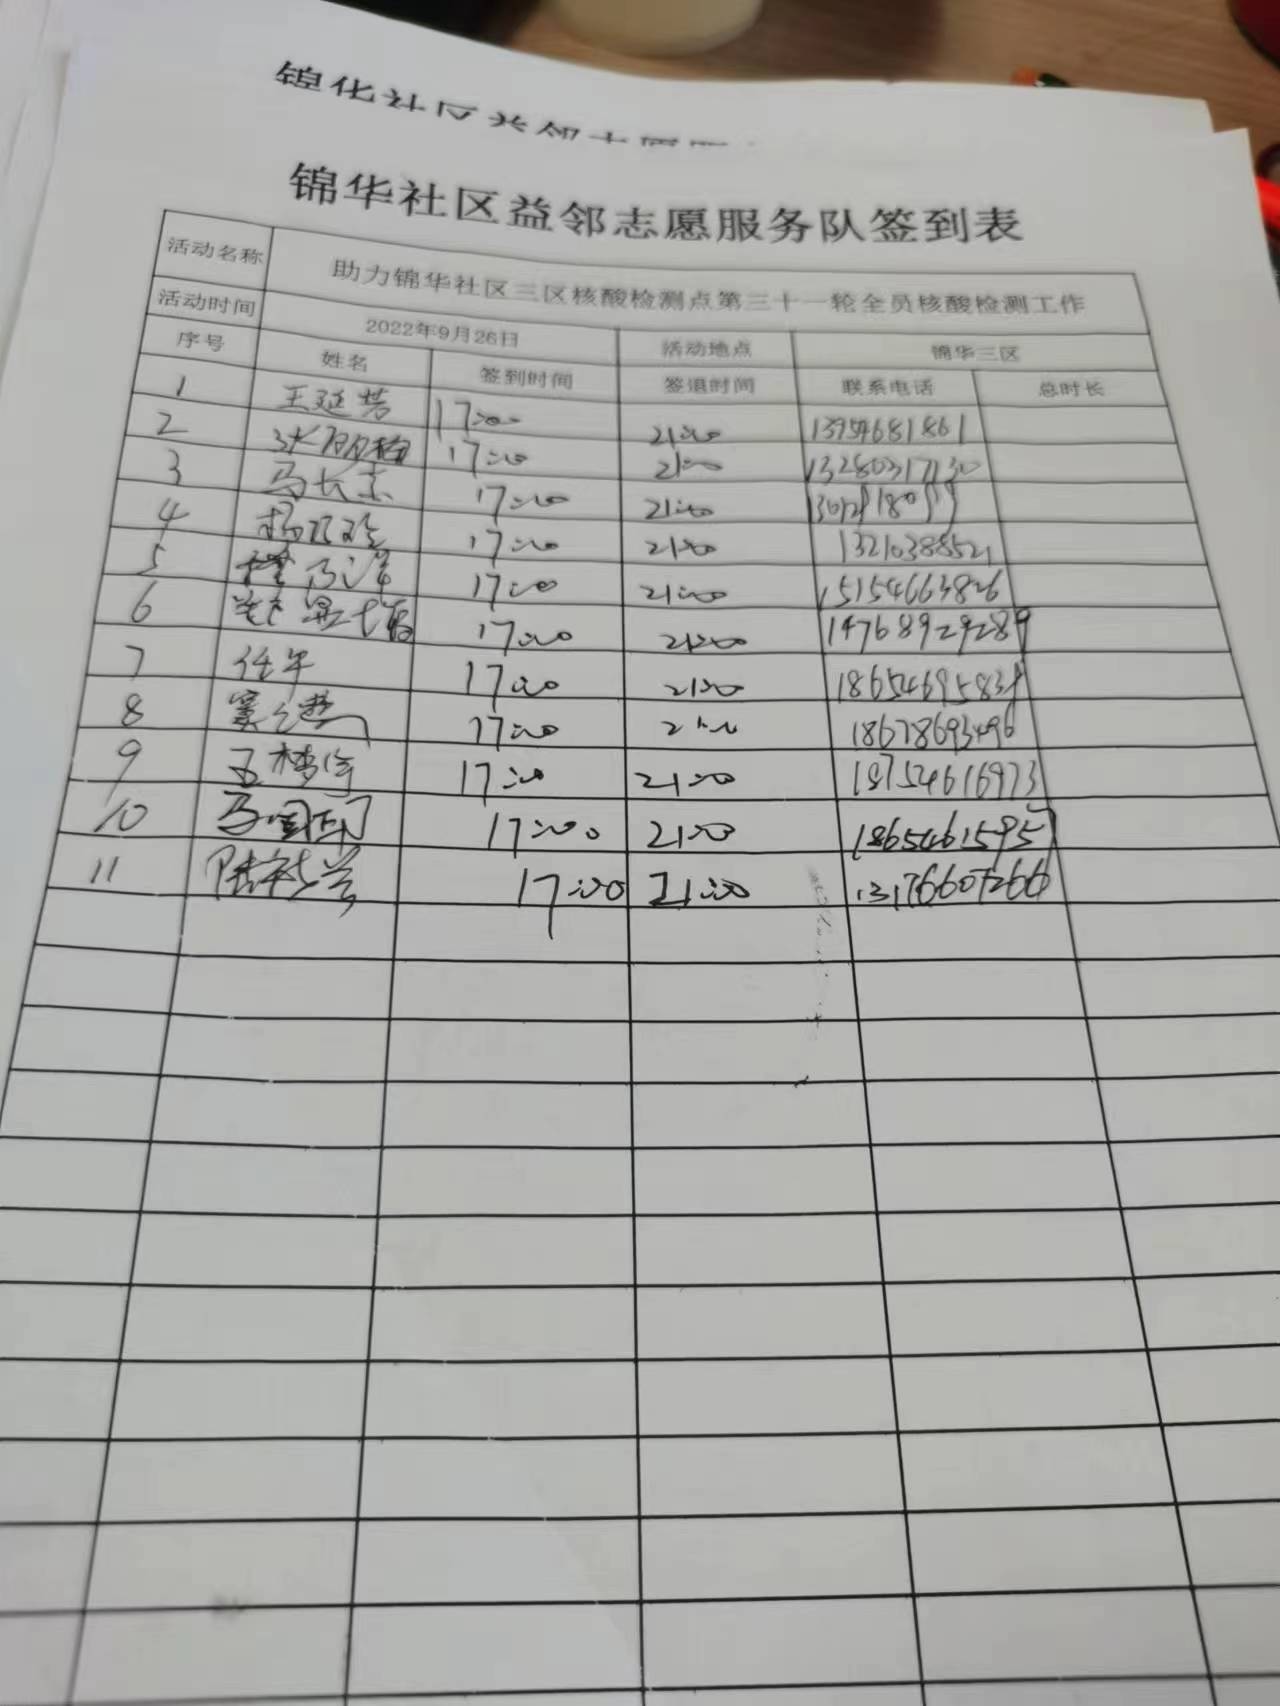 锦华社区益邻志愿服务队签到表
活动名称 助力锦华社区三区核酸检测点第三十一轮全员核酸检测工作
活动时间 2022年9月26日 活动地点 锦华三区
序号 姓名 签到时间 签退时间 联系电话 总时长
1 王延芳 17:00 21:00 13954681861
2 17:00 21:00 13280317130
3 马长青 17:00 21:00
4 17:00 21:00 1321038852
5 17:00 21:00 15154663826
6 17:00 21:00 14768929289
7 任军 17:00 21:00
8 17:00 18678693496
9 17:00 21:00 18754616973
10 马国印 17:00 21:00 18654615957
11 17:00 21:00 13176607266